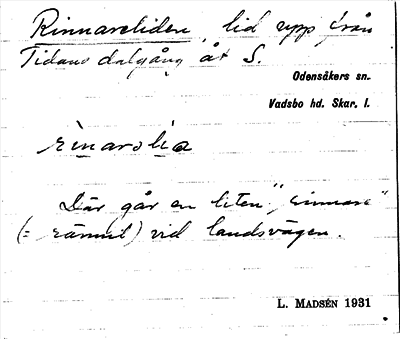 Rinnareliden, lid upp från
Tidans dalgång åt S.
Odensåkers sn.
Vadsbo hd. Skar. l.
rinarolia
Där går en liten "rinnare"
(= rännil) vid landsvägen.
L. MADSÉN 1931